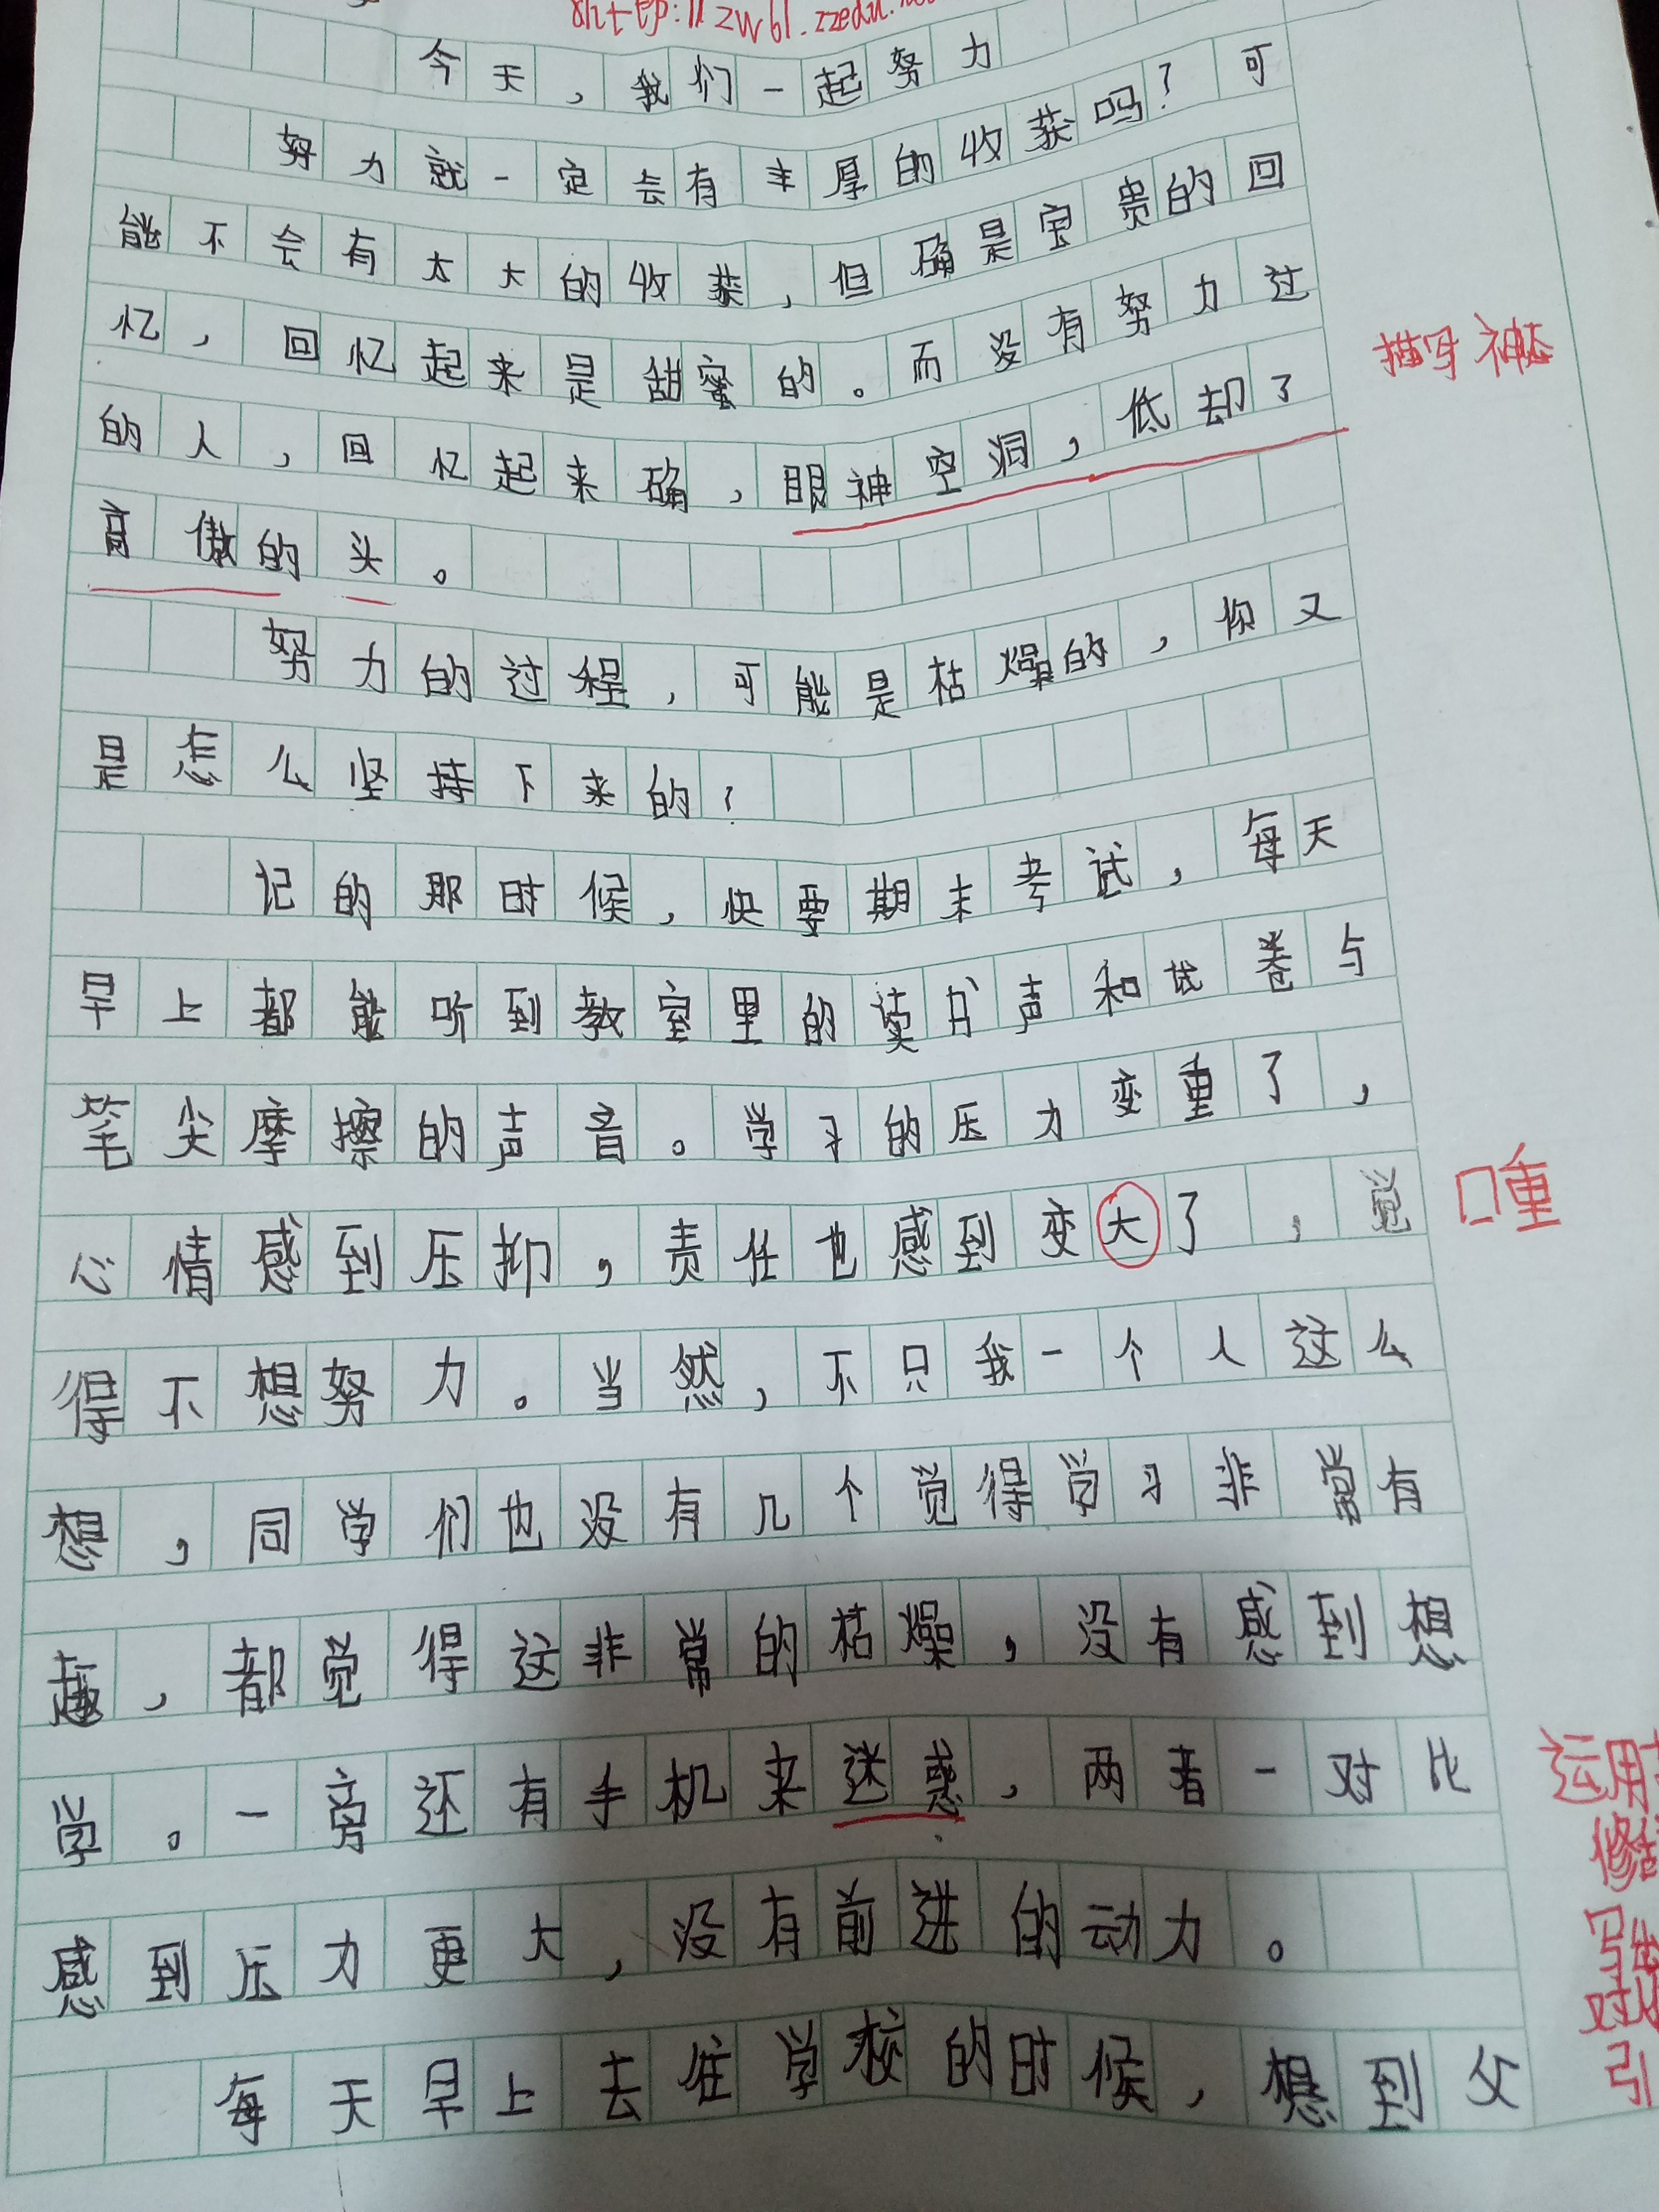 今天,我们一起努力
努力就一定会有丰厚的收获吗?可
能不会有太大的收获,但确是宝贵的回
忆,回忆起来是甜蜜的。而没有努力过
描写神态
的人,回忆起来确,眼神空洞,低却了
高傲的头。
努力的过程,可能是枯燥的,你又
是怎么坚持下来的?
记的那时候,快要期末考试,每天
早上都能听到教室里的读书声和试卷与
笔尖摩擦的声音。学习的压力变重了,
心情感到压抑,责任也感到变大了,觉
口重
得不想努力。当然,不只我一个人这么
想,同学们也没有几个觉得学习非常有
趣,都觉得这非常的枯燥,没有感到想
学。一旁还有手机来迷惑,两者一对比
运用
修
写
对
引
感到压力更大,没有前进的动力。
每天早上去往学校的时候,想到父